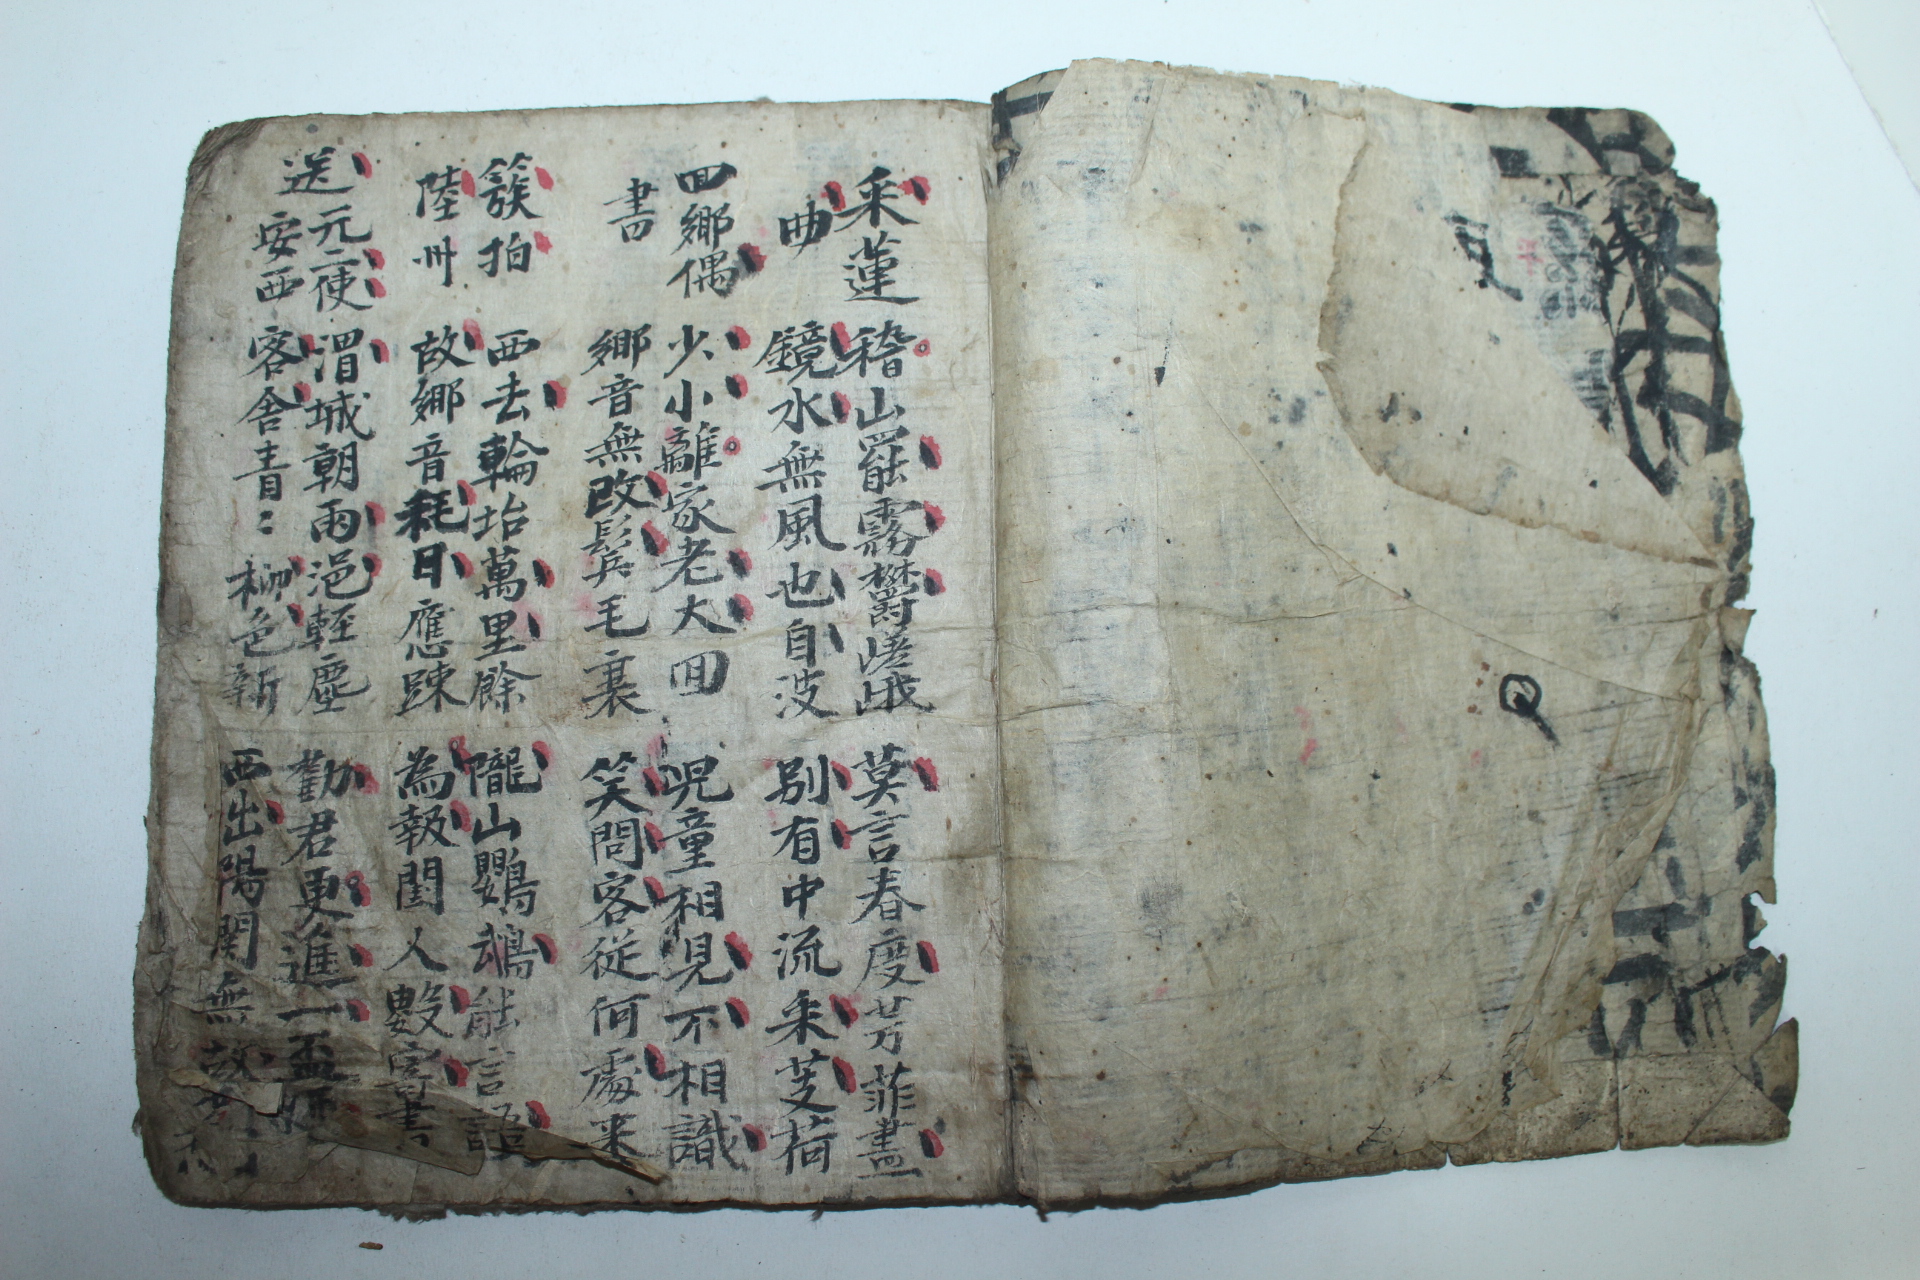 采蓮
曲
稽山罷霧鬱嵯峨
鏡水無風也自波
莫言春度芳菲盡
別有中流采芰荷
回鄉偶
書
少小離家老大回
鄉音無改鬢毛衰
児童相見不相識
笑問客從何處来
簇拍
陸州
西去輪坮萬里餘
故鄉音耗日應踈
隴山鸚鵡能言語
為報閨人數寄書
送元二使
安西
渭城朝雨浥輕塵
客舍青〻柳色新
勸君更進一盃酒
西出陽関無故